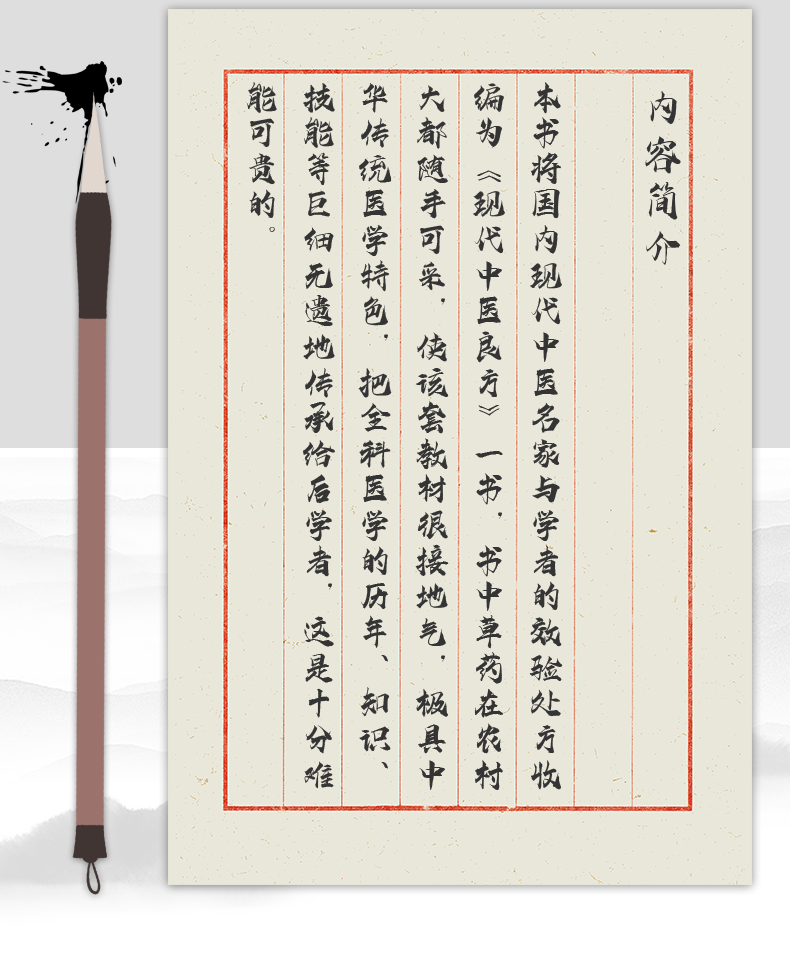 内容简介
本书将国内现代中医名家与学者的效验处方收
编为《现代中医良方》一书，书中草药在农村
大都随手可采，使该套教材很接地气，极具中
华传统医学特色，把全科医学的历年、知识、
技能等巨细无遗地传承给后学者，这是十分难
能可贵的。